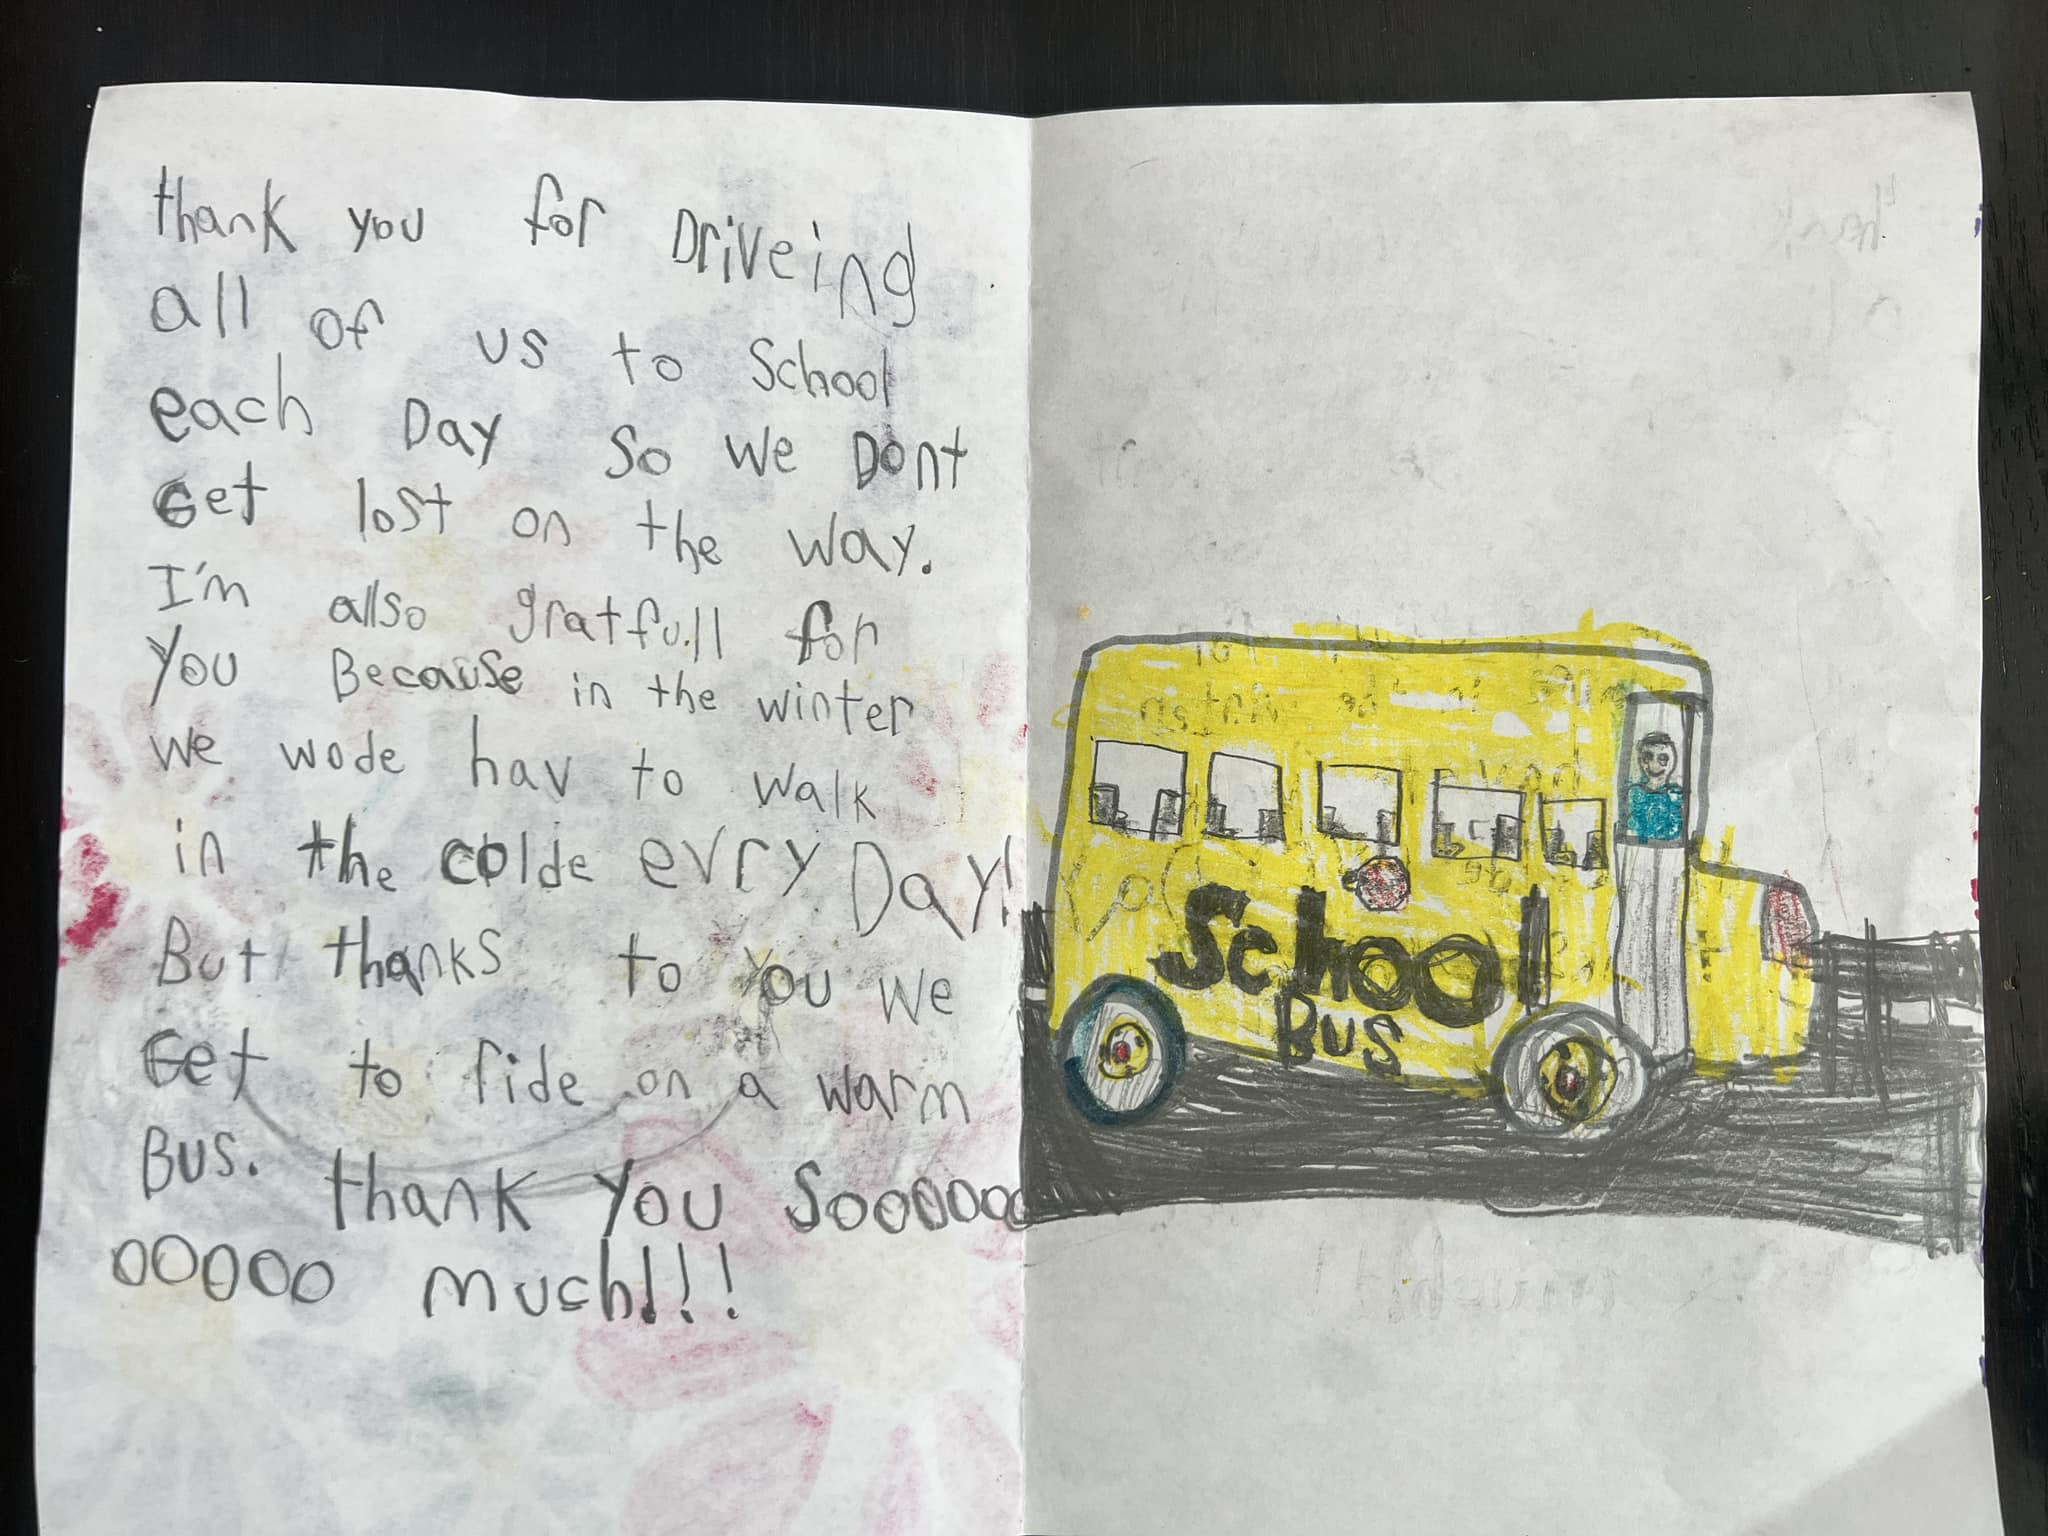 thank you for Driveing
all of us to School
each Day so we Dont
Get lost on the way.
I'm allso gratfull for
you Because in the winter
we wode hav to walk
in the colde evry Day!
But thanks to you we
Get to ride on a warm
Bus. thank you Sooooooo
ooooo much!!!
School
Bus